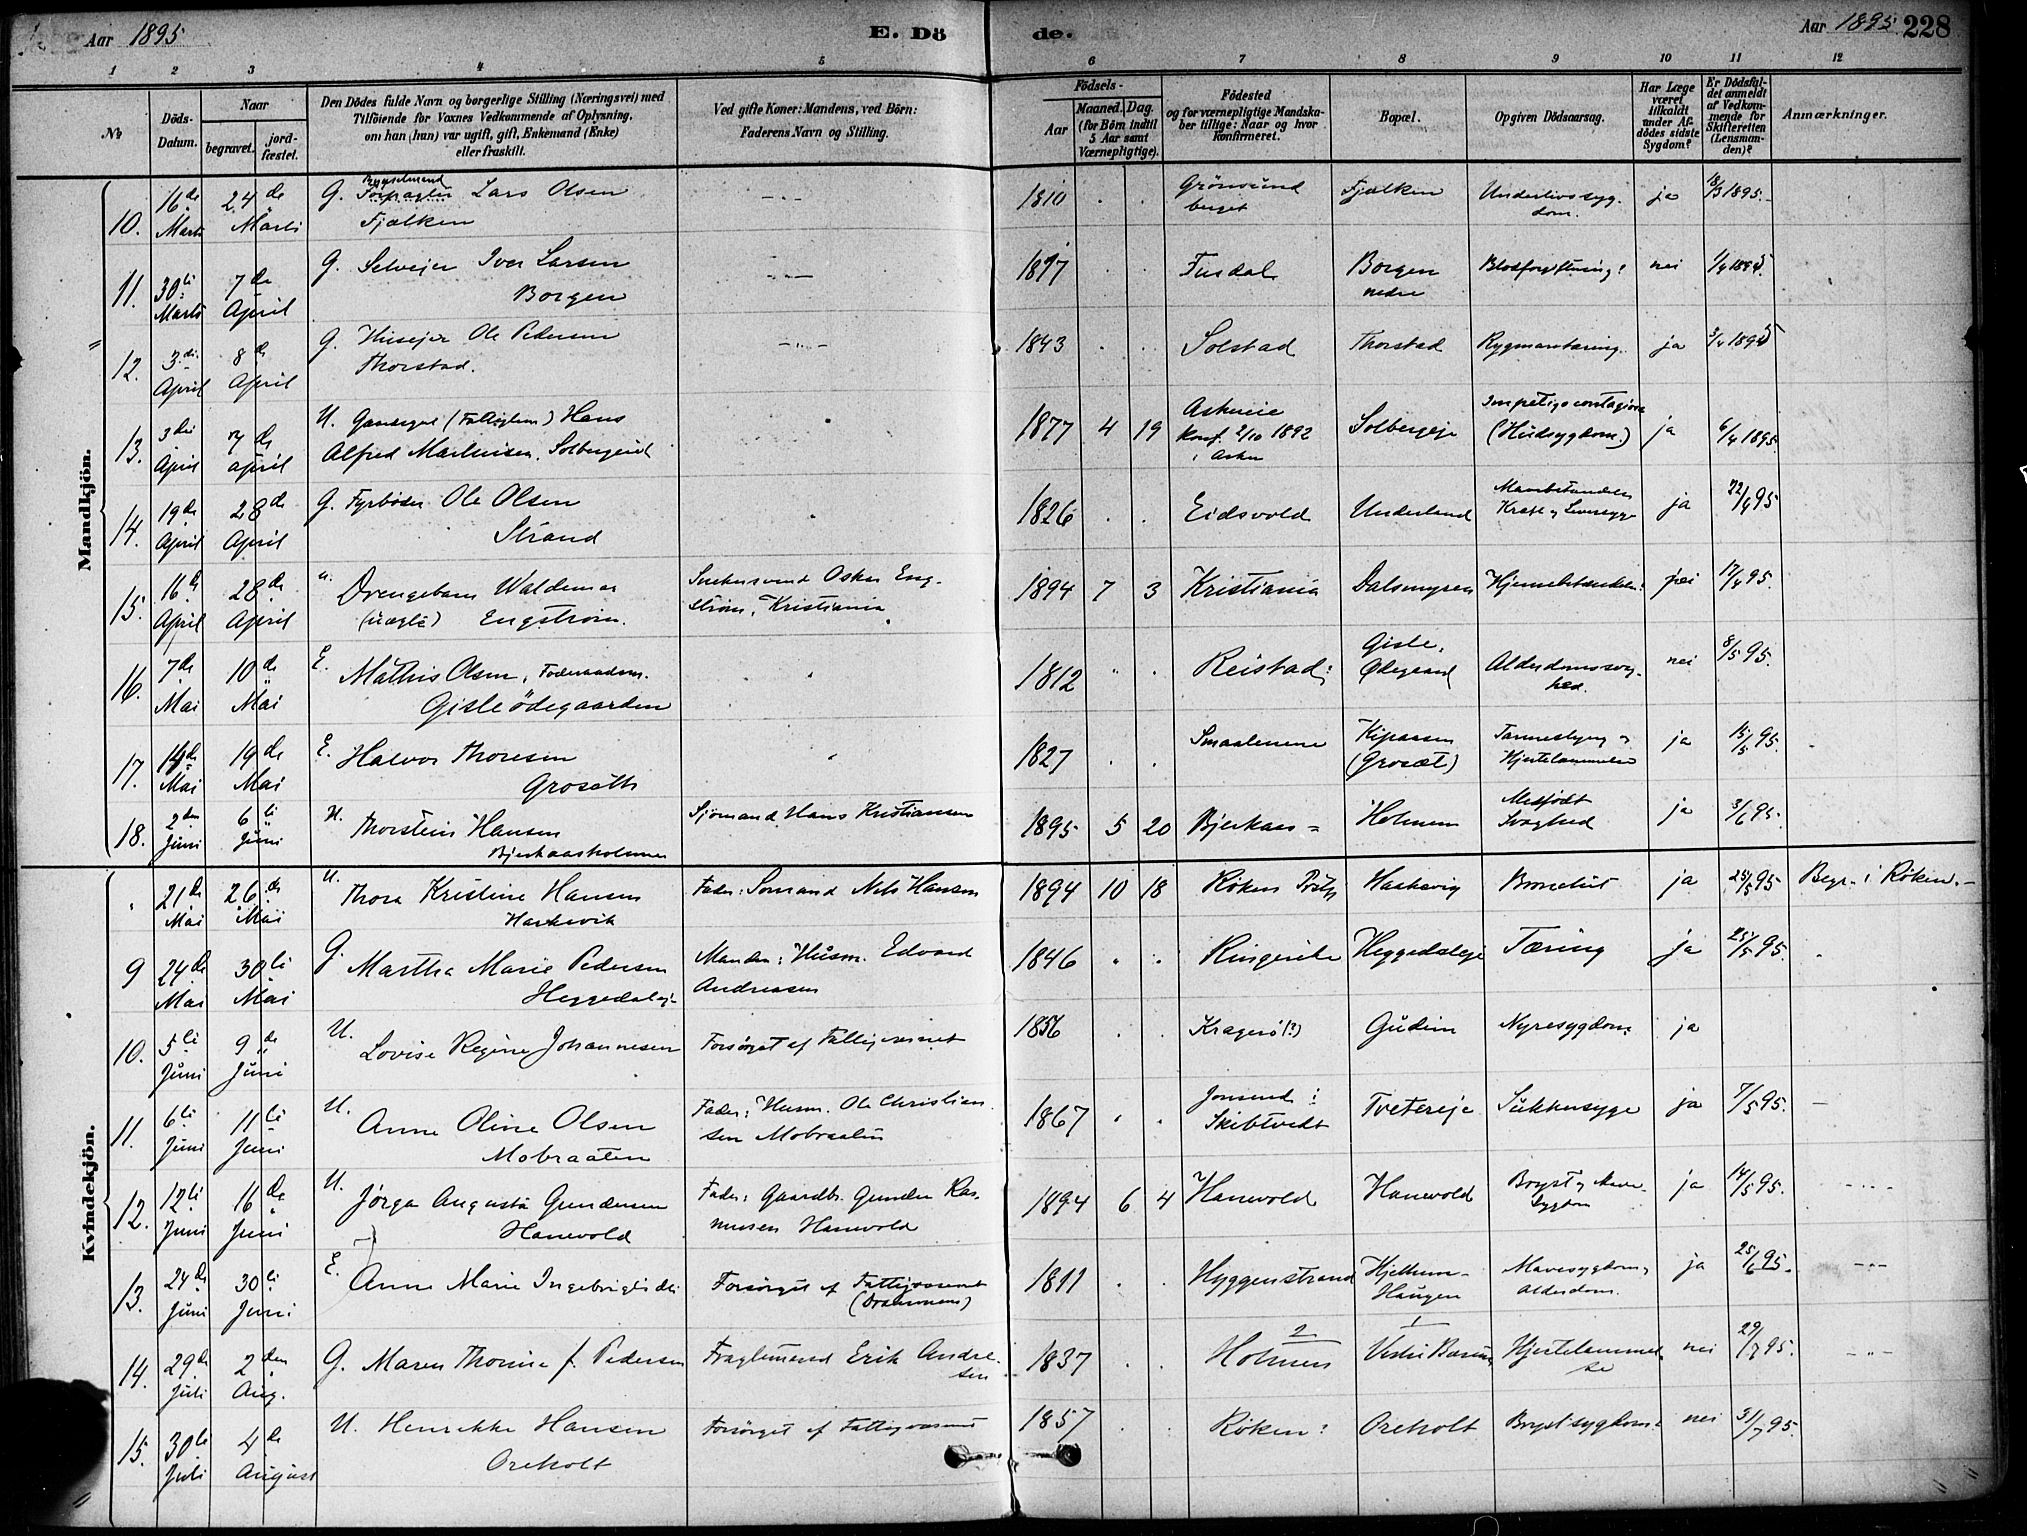 Aar 1895
E. Dö
de.
Aar 1895
228
1 2 3 4 5 6 7 8 9 10 11 12
No
Döds-
Datum.
Naar
begravet.
jord-
fæstet.
Den Dödes fulde Navn og borgerlige Stilling (Næringsvei) med
Tilföiende for Voxnes Vedkommende af Oplysning,
om han (hun) var ugift, gift, Enkemand (Enke)
eller fraskilt.
Ved gifte Koner: Mandens, ved Börn:
Faderens Navn og Stilling.
Födsels-
Aar
Maaned. Dag.
(for Börn indtil
5 Aar samt
Værnepligtige).
Födested
og for værnepligtige Mandska-
ber tillige: Naar og hvor
Konfirmeret.
Bopæl.
Opgiven Dödsaarsag.
Har Læge
været
tilkaldt
under Af-
dödes sidste
Sygdom?
Er Dödsfal-
det anmeldt
af Vedkom-
mende for
Skifteretten
(Lensman-
den)?
Anmærkninger.
Mandkjön.
10. 16de Marts 24de Marts G. Lars Olsen
Fjælken
1810 Fjælken Underlivssyg-
dom. ja 18/3 1895.
11. 30te Marts 7de April G. Selveier Iver Larsen
Borgen
Fusdal Borgen
nedre Blodforgiftning: nei 1/4 1895.
12. 3die April 8de April G. Huseier Ole Pedersen
Thorstad.
1843 Solstad Thorstad Rygmarvtæring. ja 3/4 1895
13. 3die April 7de April U.
Alfred
1877 4 19 Konf. 2/10 1892
i Asker Solbergeje Impetigo contagiosa
(Hudsygdom.) ja 6/4 1895.
14. 19de April 28de April G. Fyrböder Ole Olsen
Strand
1826 Eidsvold Underland ja 22/4 95
15. 16de April 28de April u. Drengebarn Waldemar
(uægte) Engström.
Oskar Eng-
ström, Kristiania
1894 7 3 Kristiania Dalsmyren 17/4 95.
16. 7de Mai 10de Mai E. Mathis Olsen,
Gisleödegaarden
1812 Reistad: Gisle,
Ødegaard Alderdomssvag-
hed. nei 8/5 95.
17. 14de Mai 19de Mai E. Halvor Thoresen
Groseth
1827 Smaalenene
(Grosæt)
Hjertelammelse ja 15/5 95.
18. 2den Juni 6te Juni U. Thorstein Hansen
Bjerkaasholmen
Sjömand Hans Kristiansen
1895 5 20 Bjerkaas= Holmen Medfödt
Svaghed ja 3/6 95.
Kvindekjön.
21de Mai 26de Mai U. Thora Kristine Hansen
Harkevik
Fader: Sömand Nils Hansen
1894 10 18 Röken ja 25/5 95 Begr. i Röken.
9 24de Mai 30te Mai G. Martha Marie Pedersen
Manden: Husm. Edvard
Andreasen
1846 Ringerike Heggedaleje Tæring ja 25/5 95.
10. 5te Juni 9de Juni U. Lovise Regine Johannesen
Forsörget af Fattigvæsenet
1856 Kragerö(?) Gudim Nyresygdom: ja
11. 6te Juni 11te Juni U. Anne Oline Olsen
Mobraaten
Fader: Husm. Ole Christian-
sen Mobraaten
1867
Skibtvedt Tvetereje Sukkersyge ja 7/5 95.
12. 12te Juni 16de Juni U. Jörga Augusta Gundersen
Hanevold
Fader: Gaardbr. Gunder Ras-
mussen Hanevold
1894 6 4 Hanevold Hanevold
ja 14/5 95.
13. 24de Juni 30te Juni E. Anne Marie Ingebrigtsdtr
Forsörget af Fattigvæsenet
(Drammens)
1811 Hyggenstrand Hjellum-
Haugen Mavesygdom,
Alderdom. ja 25/6 95.
14. 29de Juli 2den Aug. G. Maren Thorine f. Pedersen
Erik Andre-
sen
1837 2
Holmen 1
Vestre Hjertelammel-
se nei 29/7 95.
15. 30te Juli 4de August U. Henrikke Hansen
Oreholt
Forsörget af Fattigvæsenet
1857 Röken: Oreholt Brystsygdom: nei 31/7 95.